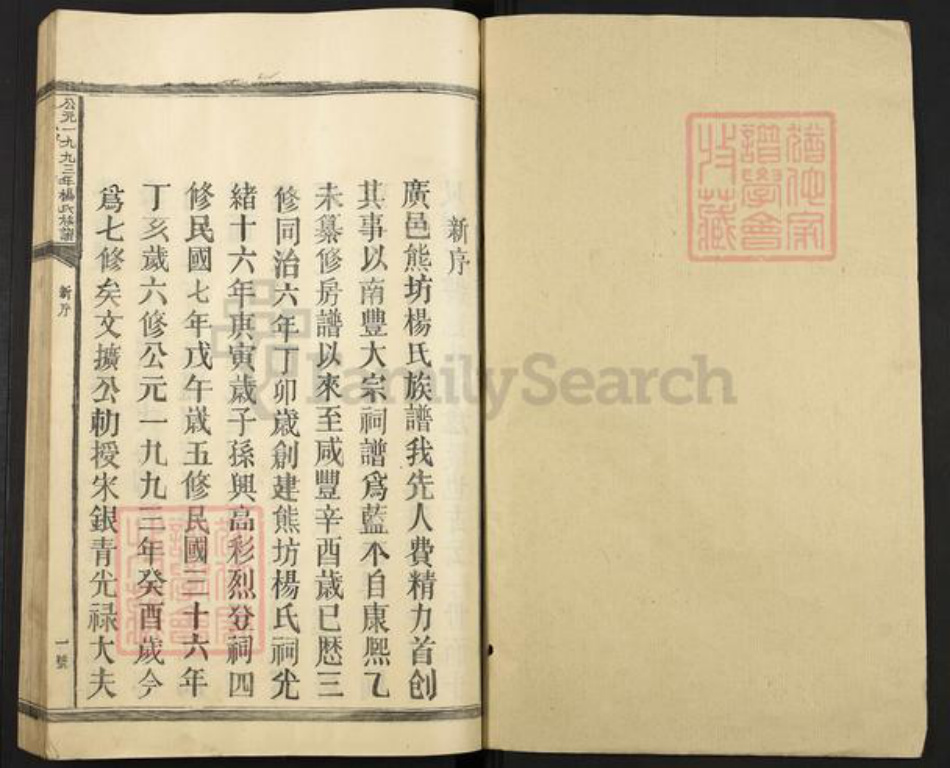 新序
廣邑熊坊楊氏族譜我先人費精力首創
其事以南豐大宗祠譜爲藍本自康熙乙
未纂修房譜以來至咸豐辛酉歲已歷三
修同治六年丁卯歲創建熊坊楊氏祠光
緒十六年庚寅歲子孫興高彩烈登祠四
修民國七年戊午歲五修民國三十六年
丁亥歲六修公元一九九三年癸酉歲今
爲七修矣文擴公勅授宋銀青光祿大夫
公元一九九三年楊氏族譜
新序
一號
譜學會
收藏
FamilySearch